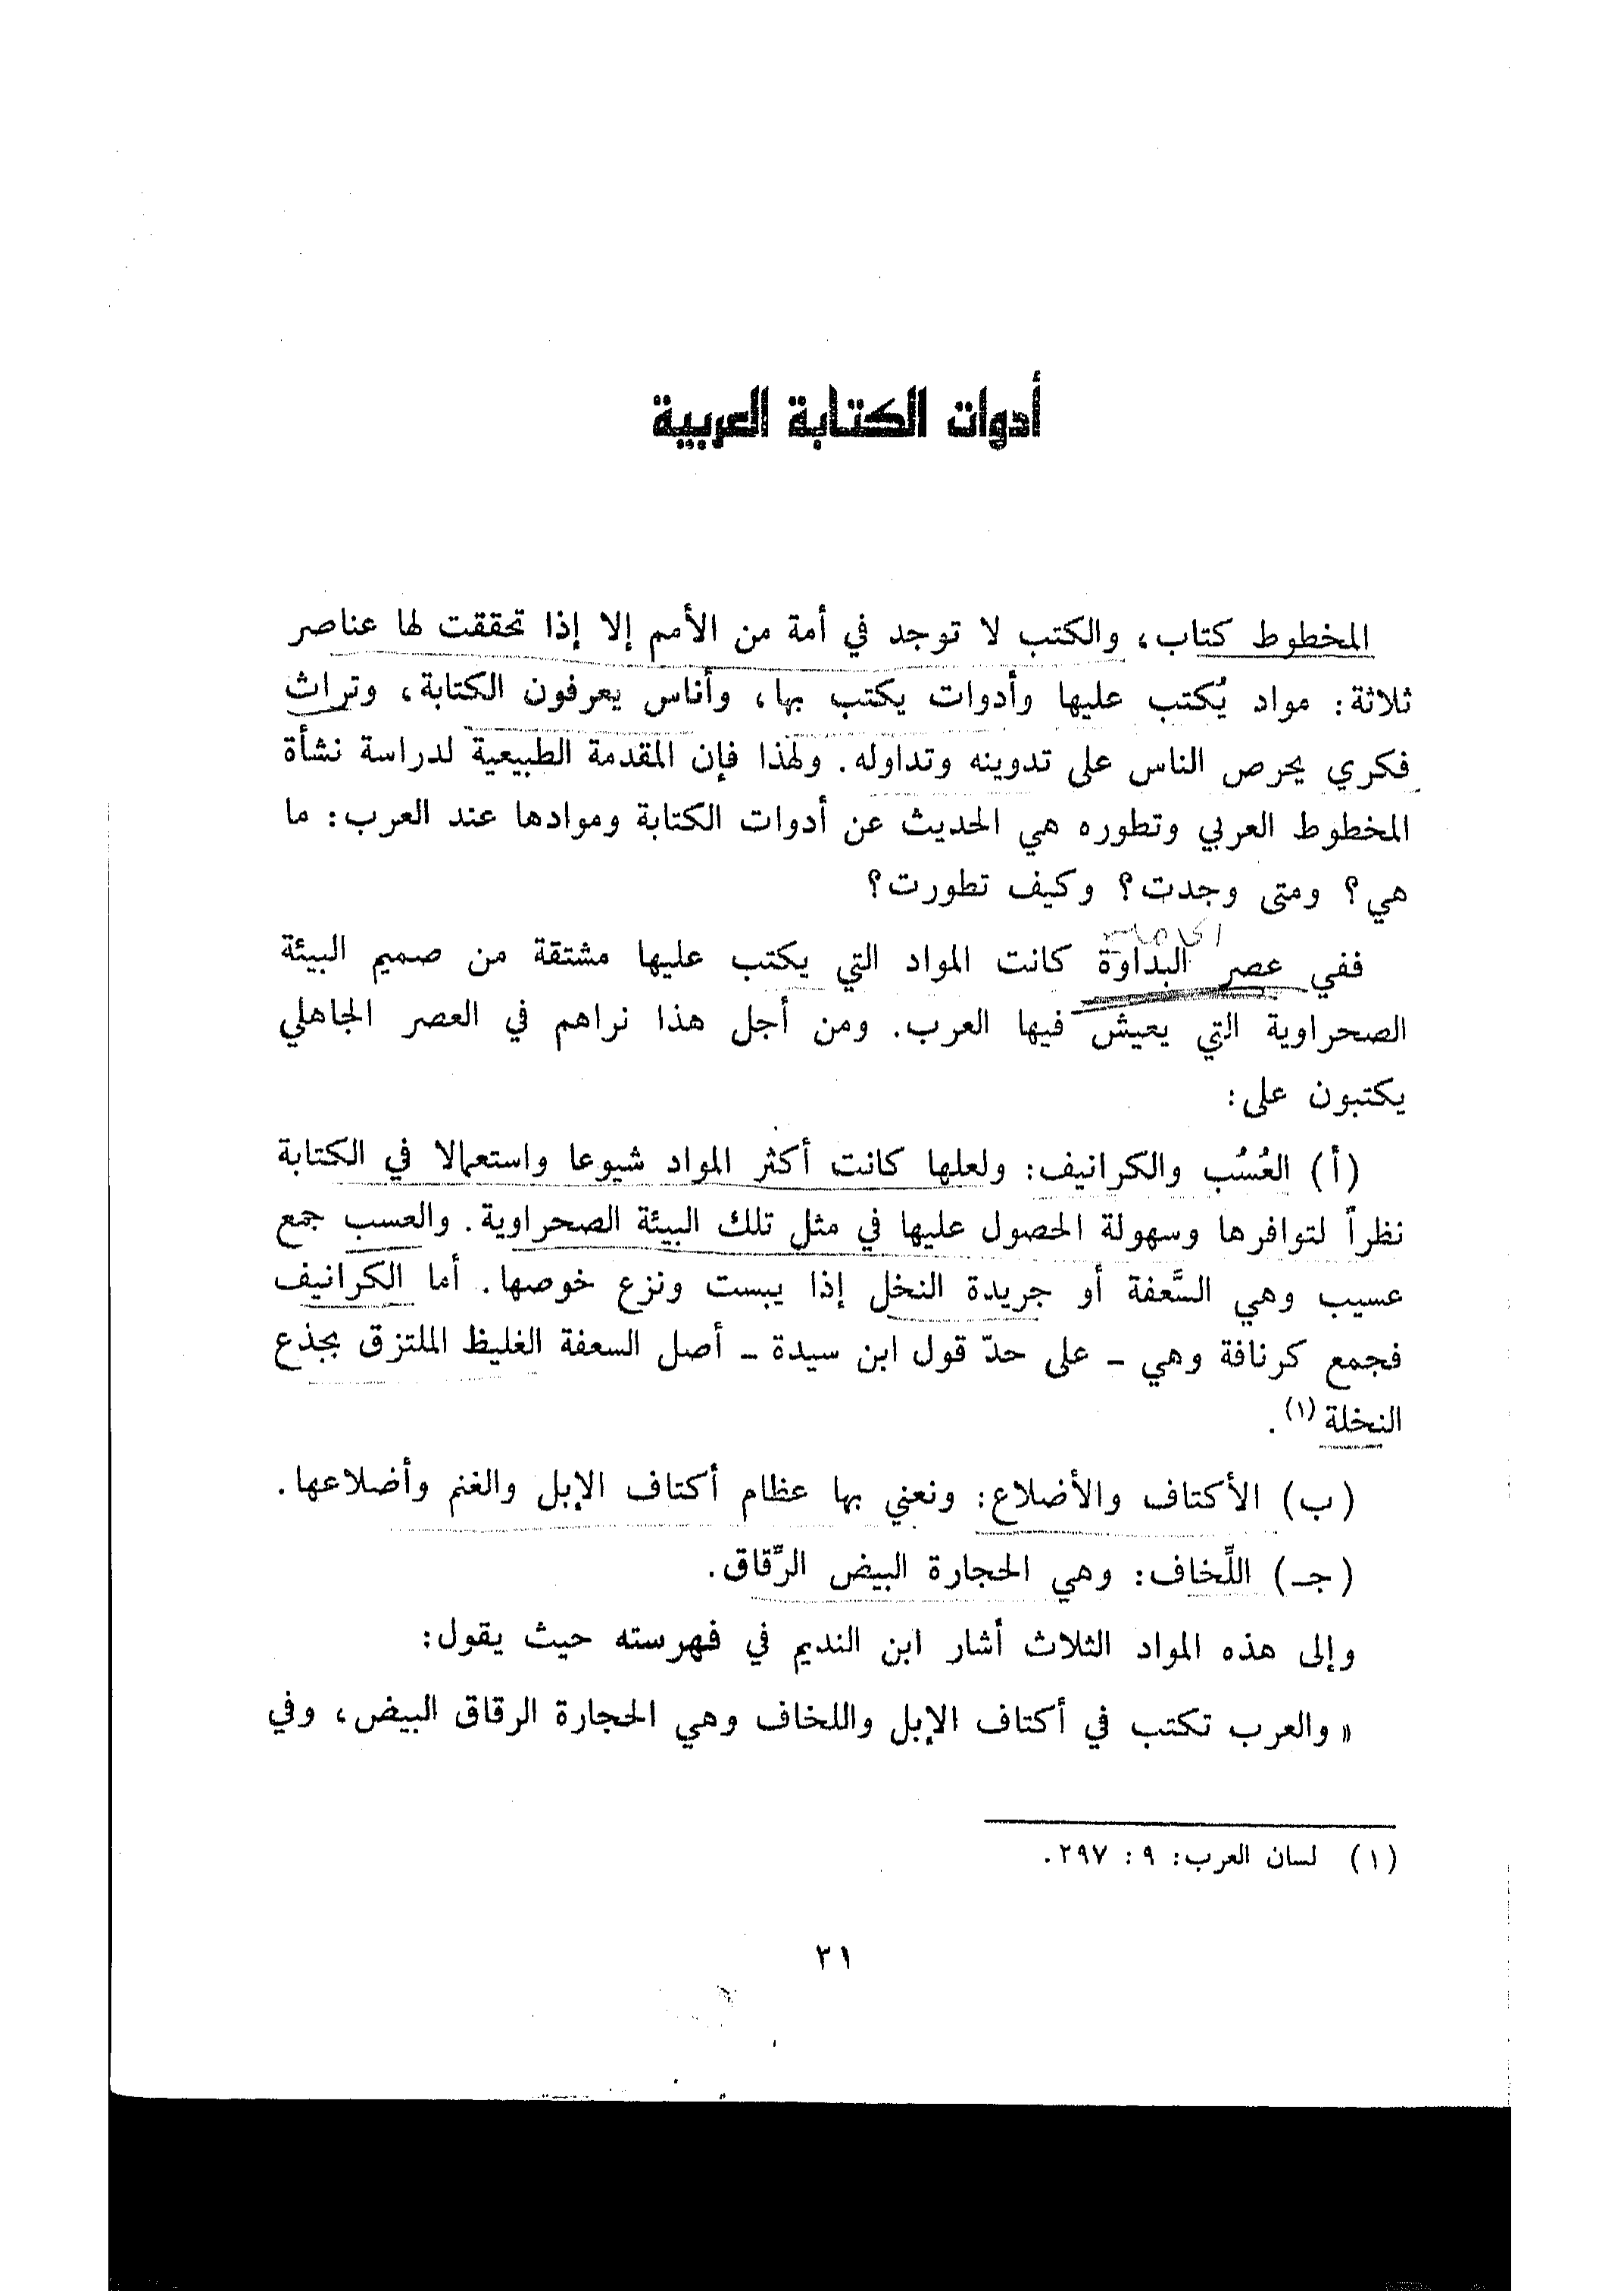 أدوات الكتابة العربية
المخطوط كتاب، والكتب لا توجد في أمة من الأمم إلا إذا تحققت لها عناصر
ثلاثة: مواد يُكتب عليها وأدوات يكتب بها، وأناس يعرفون الكتابة، وتراث
فكري يحرص الناس على تدوينه وتداوله. ولهذا فإن المقدمة الطبيعية لدراسة نشأة
المخطوط العربي وتطوره هي الحديث عن أدوات الكتابة وموادها عند العرب: ما
هي؟ ومتى وجدت؟ وكيف تطورت؟
ففي عصر البداوة كانت المواد التي يكتب عليها مشتقة من صميم البيئة
الصحراوية التي يعيش فيها العرب. ومن أجل هذا نراهم في العصر الجاهلي
يكتبون على:
(أ) العُسُب والكرانيف: ولعلها كانت أكثر المواد شيوعا واستعمالا في الكتابة
نظراً لتوافرها وسهولة الحصول عليها في مثل تلك البيئة الصحراوية. والعسب جمع
عسيب وهي السَّعفة أو جريدة النخل إذا يبست ونزع خوصها. أما الكرانيف
فجمع كرنافة وهي - على حدّ قول ابن سيدة - أصل السعفة الغليظ الملتزق بجذع
النخلة (١).
(ب) الأكتاف والأضلاع: ونعني بها عظام أكتاف الإبل والغنم وأضلاعها.
(جـ) اللِّخاف: وهي الحجارة البيض الرِّقاق.
وإلى هذه المواد الثلاث أشار ابن النديم في فهرسته حيث يقول:
« والعرب تكتب في أكتاف الإبل واللخاف وهي الحجارة الرقاق البيض، وفي
(١) لسان العرب: ٩ : ٢٩٧.
٢١